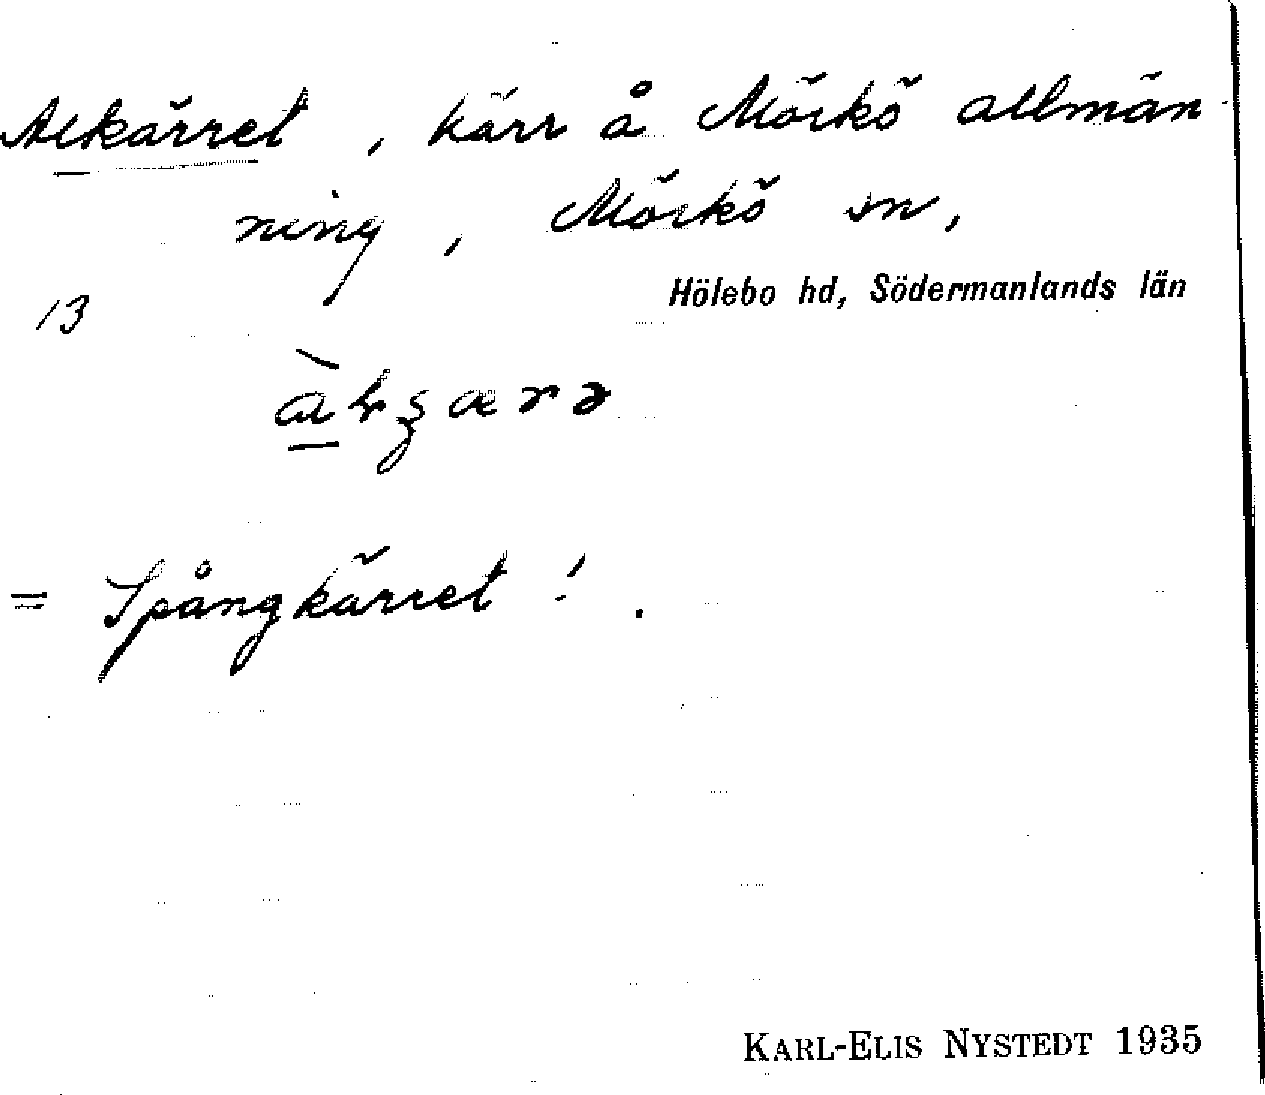 Alkärret, kärr å Mörkö allmän-
ning, Mörkö sn,
Hölebo hd, Södermanlands län
13
= Spångkärret !.
KARL-ELIS NYSTEDT 1935